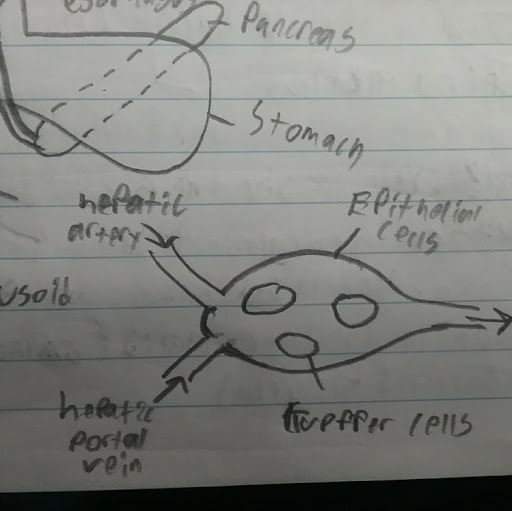 Pancreas
Stomach
hepatic
artery
Epithelial
cells
usoid
hepatic
portal
vein
Kupffer cells